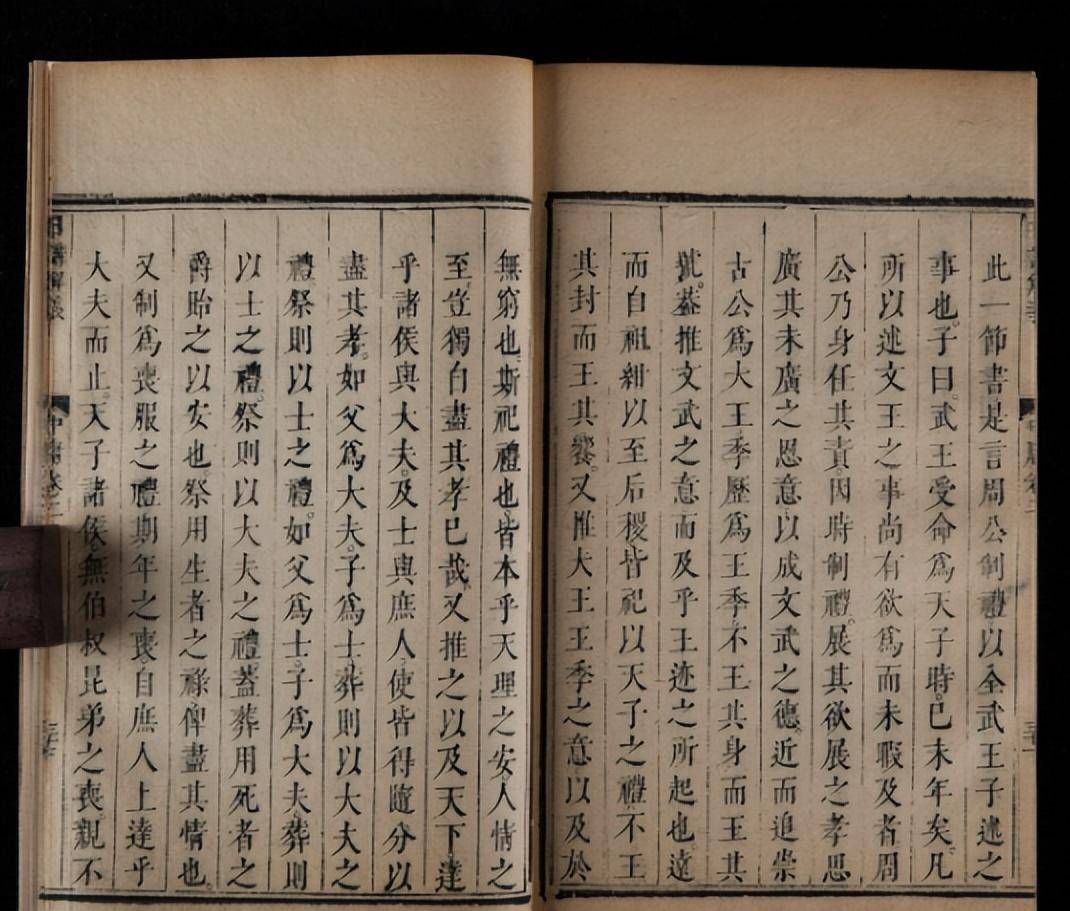 此一節書是言周公制禮以全武王子述之
事也。子曰。武王受命爲天子時。已末年矣。凡
所以述文王之事尚有欲爲而未暇及者。周
公乃身任其責因時制禮。展其欲展之孝思
廣其未廣之恩意以成文武之德。近而追崇
古公爲大王季歷爲王季。不王其身而王其
號。蓋推文武之意而及乎王迹之所起也。遠
而自祖紺以至后稷皆祀以天子之禮。不王
其封而王其饗。又惟大王王季之意以及於
無窮也。斯祀禮也。皆本乎天理之安人情之
至。豈獨自盡其孝已哉。又推之以及天下。達
乎諸侯與大夫。及士與庶人。使皆得隨分以
盡其孝。如父爲大夫。子爲士。葬則以大夫之
禮。祭則以士之禮。如父爲士。子爲大夫。葬則
以士之禮。祭則以大夫之禮。蓋葬用死者之
爵貽之以安也。祭用生者之祿俾盡其情也。
又制爲喪服之禮。期年之喪。自庶人上達乎
大夫而止。天子諸侯。無伯叔昆弟之喪。親不